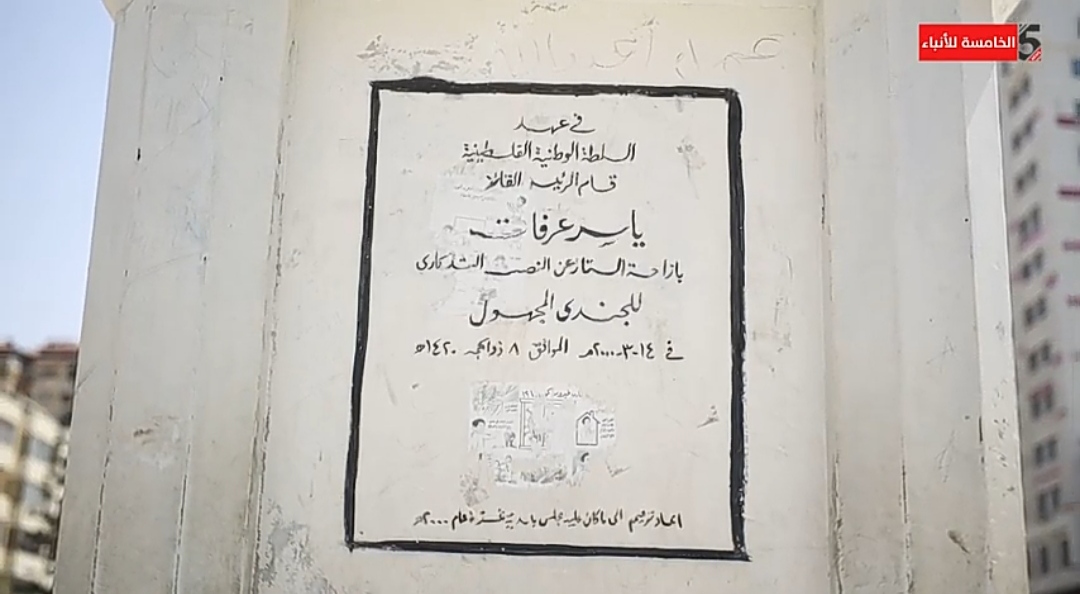 الخامسة للأنباء
5
في عهد
السلطة الوطنية الفلسطينية
قام الرئيس القائد
ياسر عرفات
بازاحة الستار عن النصب التذكارى
للجندى المجهول
في ١٤-٣-٢٠٠٠م الموافق ٨ ذوالحجه ١٤٢٠ه
الى ماكان عليه مجلس بلدية غزة عام ٢٠٠٠